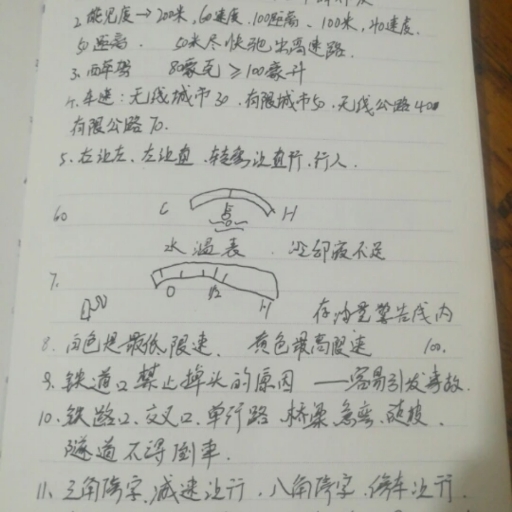 2. 能见度→200米,60速度,100距离、100米,40速度.
50距离. 50米尽快驶出高速路.
3. 醉驾 80毫克≥100毫升
4. 车速:无线城市30.有限城市50.无线公路40
有限公路70.
5. 右让左、左让直、转弯让直行,行人.
6. C H
水温表. 冷却液不足
7. 0 1/2 H
存油量警告线内
8. 白色是最低限速、黄色最高限速 100.
9. 铁道口禁止掉头的原因——容易引发事故.
10. 铁路口、交叉口、单行路、桥梁、急弯、陡坡、
隧道不得倒车.
11. 三角停字,减速让行.八角停字.停车让行.